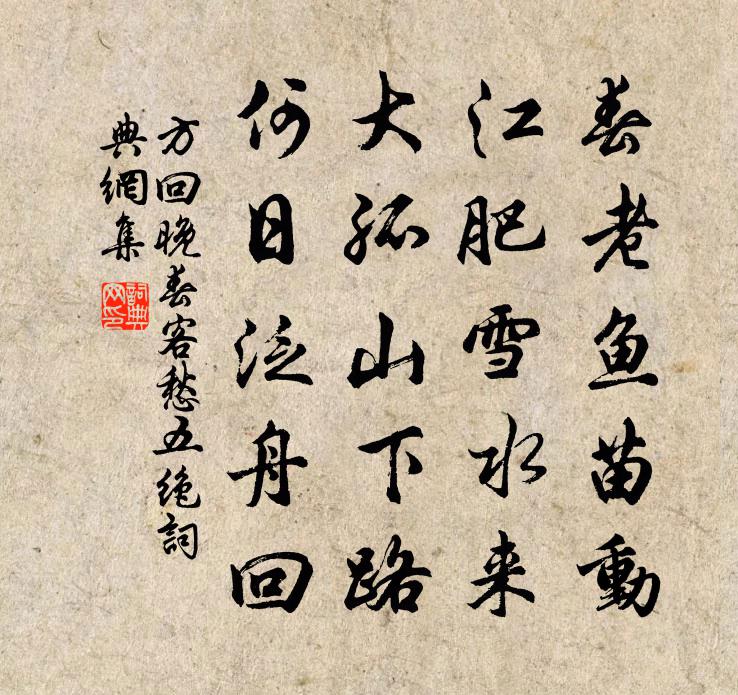 春老鱼苗動
江肥雪水来
大孤山下路
何日泛舟回
方回晚春客愁五绝詞
典網集
詞典网印